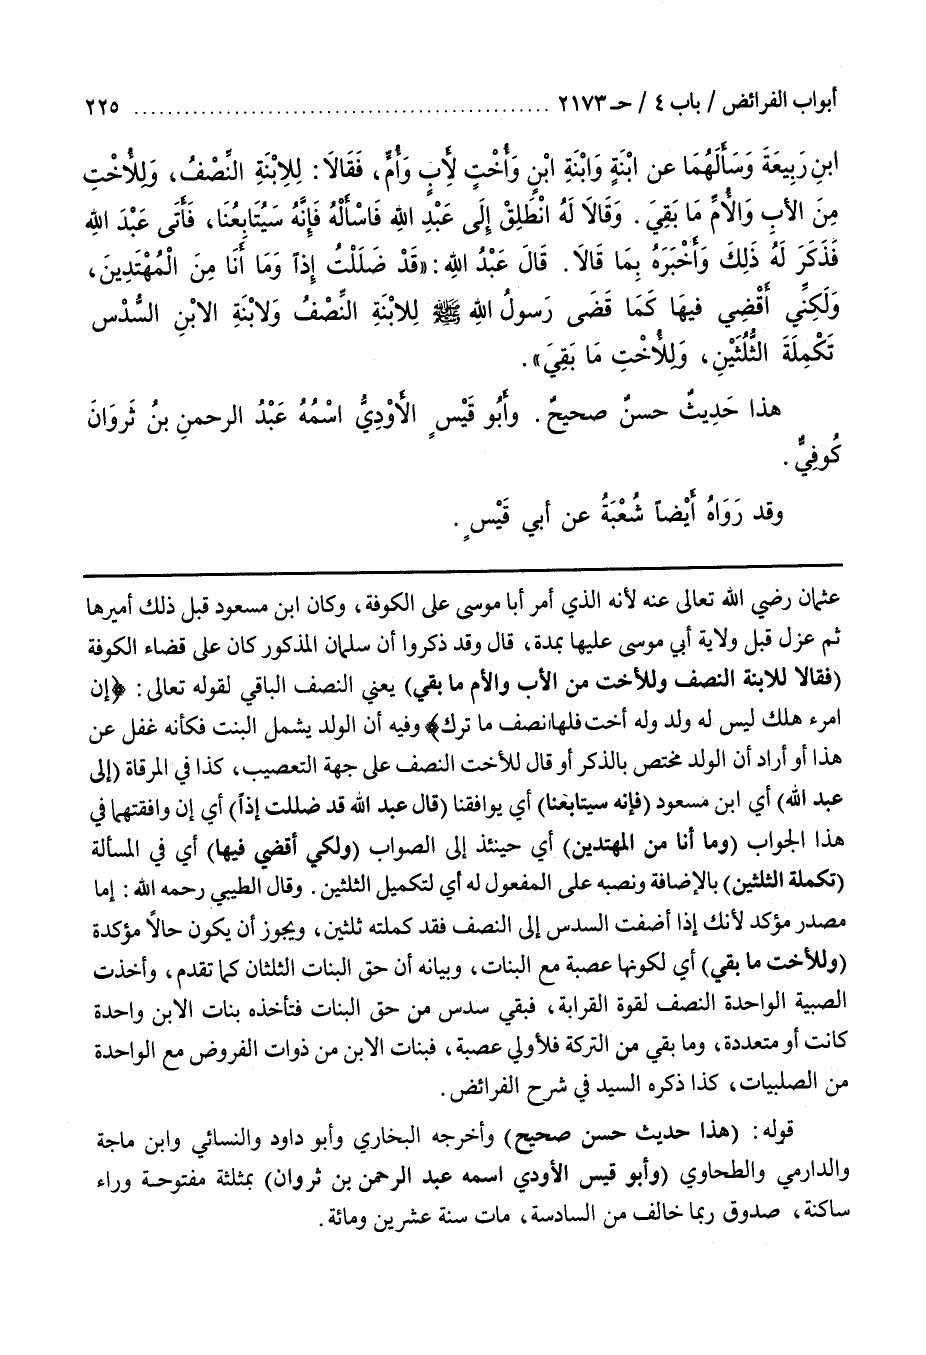 أبواب الفرائض / باب ٤ / حـ ٢١٧٣ ................................................ ٢٢٥
ابنِ رَبِيعَةَ وَسَأَلَهُمَا عن ابْنَةٍ وَابْنَةِ ابْنٍ وَأُخْتٍ لِأَبٍ وَأُمٍّ، فَقَالَا: لِلابْنَةِ النِّصْفُ، وَلِلْأُخْتِ
مِنَ الأبِ وَالْأُمِّ مَا بَقِيَ. وَقَالَا لَهُ انْطَلِقْ إِلَى عَبْدِ الله فَاسْأَلْهُ فَإِنَّهُ سَيُتَابِعُنَا، فَأَتَى عَبْدَ الله
فَذَكَرَ لَهُ ذَلِكَ وَأَخْبَرَهُ بِمَا قَالَا. قَالَ عَبْدُ الله: «قَدْ ضَلَلْتُ إِذاً وَمَا أَنَا مِنَ الْمُهْتَدِينَ،
وَلَكِنِّي أَقْضِي فيهَا كَمَا قَضَى رَسولُ الله ﷺ لِلابْنَةِ النِّصْفُ وَلابْنَةِ الابْنِ السُّدْس
تَكْمِلَةَ الثُّلُثَيْنِ، وَلِلْأُخْتِ مَا بَقِيَ».
هذا حَدِيثٌ حسنٌ صحيحٌ. وأَبُو قَيْسٍ الْأَوْدِيُّ اسْمُهُ عَبْدُ الرحمنِ بنُ ثَروَانَ
كُوفِيٌّ.
وقد رَوَاهُ أَيْضاً شُعْبَةُ عن أبي قَيْسٍ.
عثمان رضي الله تعالى عنه لأنه الذي أمر أبا موسى على الكوفة، وكان ابن مسعود قبل ذلك أميرها
ثم عزل قبل ولاية أبي موسى عليها بمدة، قال وقد ذكروا أن سلمان المذكور كان على قضاء الكوفة
(فقالا للابنة النصف وللأخت من الأب والأم ما بقي) يعني النصف الباقي لقوله تعالى: ﴿إن
امرء هلك ليس له ولد وله أخت فلها نصف ما ترك﴾ وفيه أن الولد يشمل البنت فكأنه غفل عن
هذا أو أراد أن الولد مختص بالذكر أو قال للأخت النصف على جهة التعصيب، كذا في المرقاة (إلى
عبد الله) أي ابن مسعود (فإنه سيتابعنا) أي يوافقنا (قال عبد الله قد ضللت إذاً) أي إن وافقتهما في
هذا الجواب (وما أنا من المهتدين) أي حينئذ إلى الصواب (ولكي أقضي فيها) أي في المسألة
(تكملة الثلثين) بالإضافة ونصبه على المفعول له أي لتكميل الثلثين. وقال الطيبي رحمه الله: إما
مصدر مؤكد لأنك إذا أضفت السدس إلى النصف فقد كملته ثلثين، ويجوز أن يكون حالاً مؤكدة
(وللأخت ما بقي) أي لكونها عصبة مع البنات، وبيانه أن حق البنات الثلثان كما تقدم، وأخذت
الصبية الواحدة النصف لقوة القرابة، فبقي سدس من حق البنات فتأخذه بنات الابن واحدة
كانت أو متعددة، وما بقي من التركة فلأولي عصبة، فبنات الابن من ذوات الفروض مع الواحدة
من الصلبيات، كذا ذكره السيد في شرح الفرائض.
قوله: (هذا حديث حسن صحيح) وأخرجه البخاري وأبو داود والنسائي وابن ماجة
والدارمي والطحاوي (وأبو قيس الأودي اسمه عبد الرحمن بن ثروان) بمثلثة مفتوحة وراء
ساكنة، صدوق ربما خالف من السادسة، مات سنة عشرين ومائة.